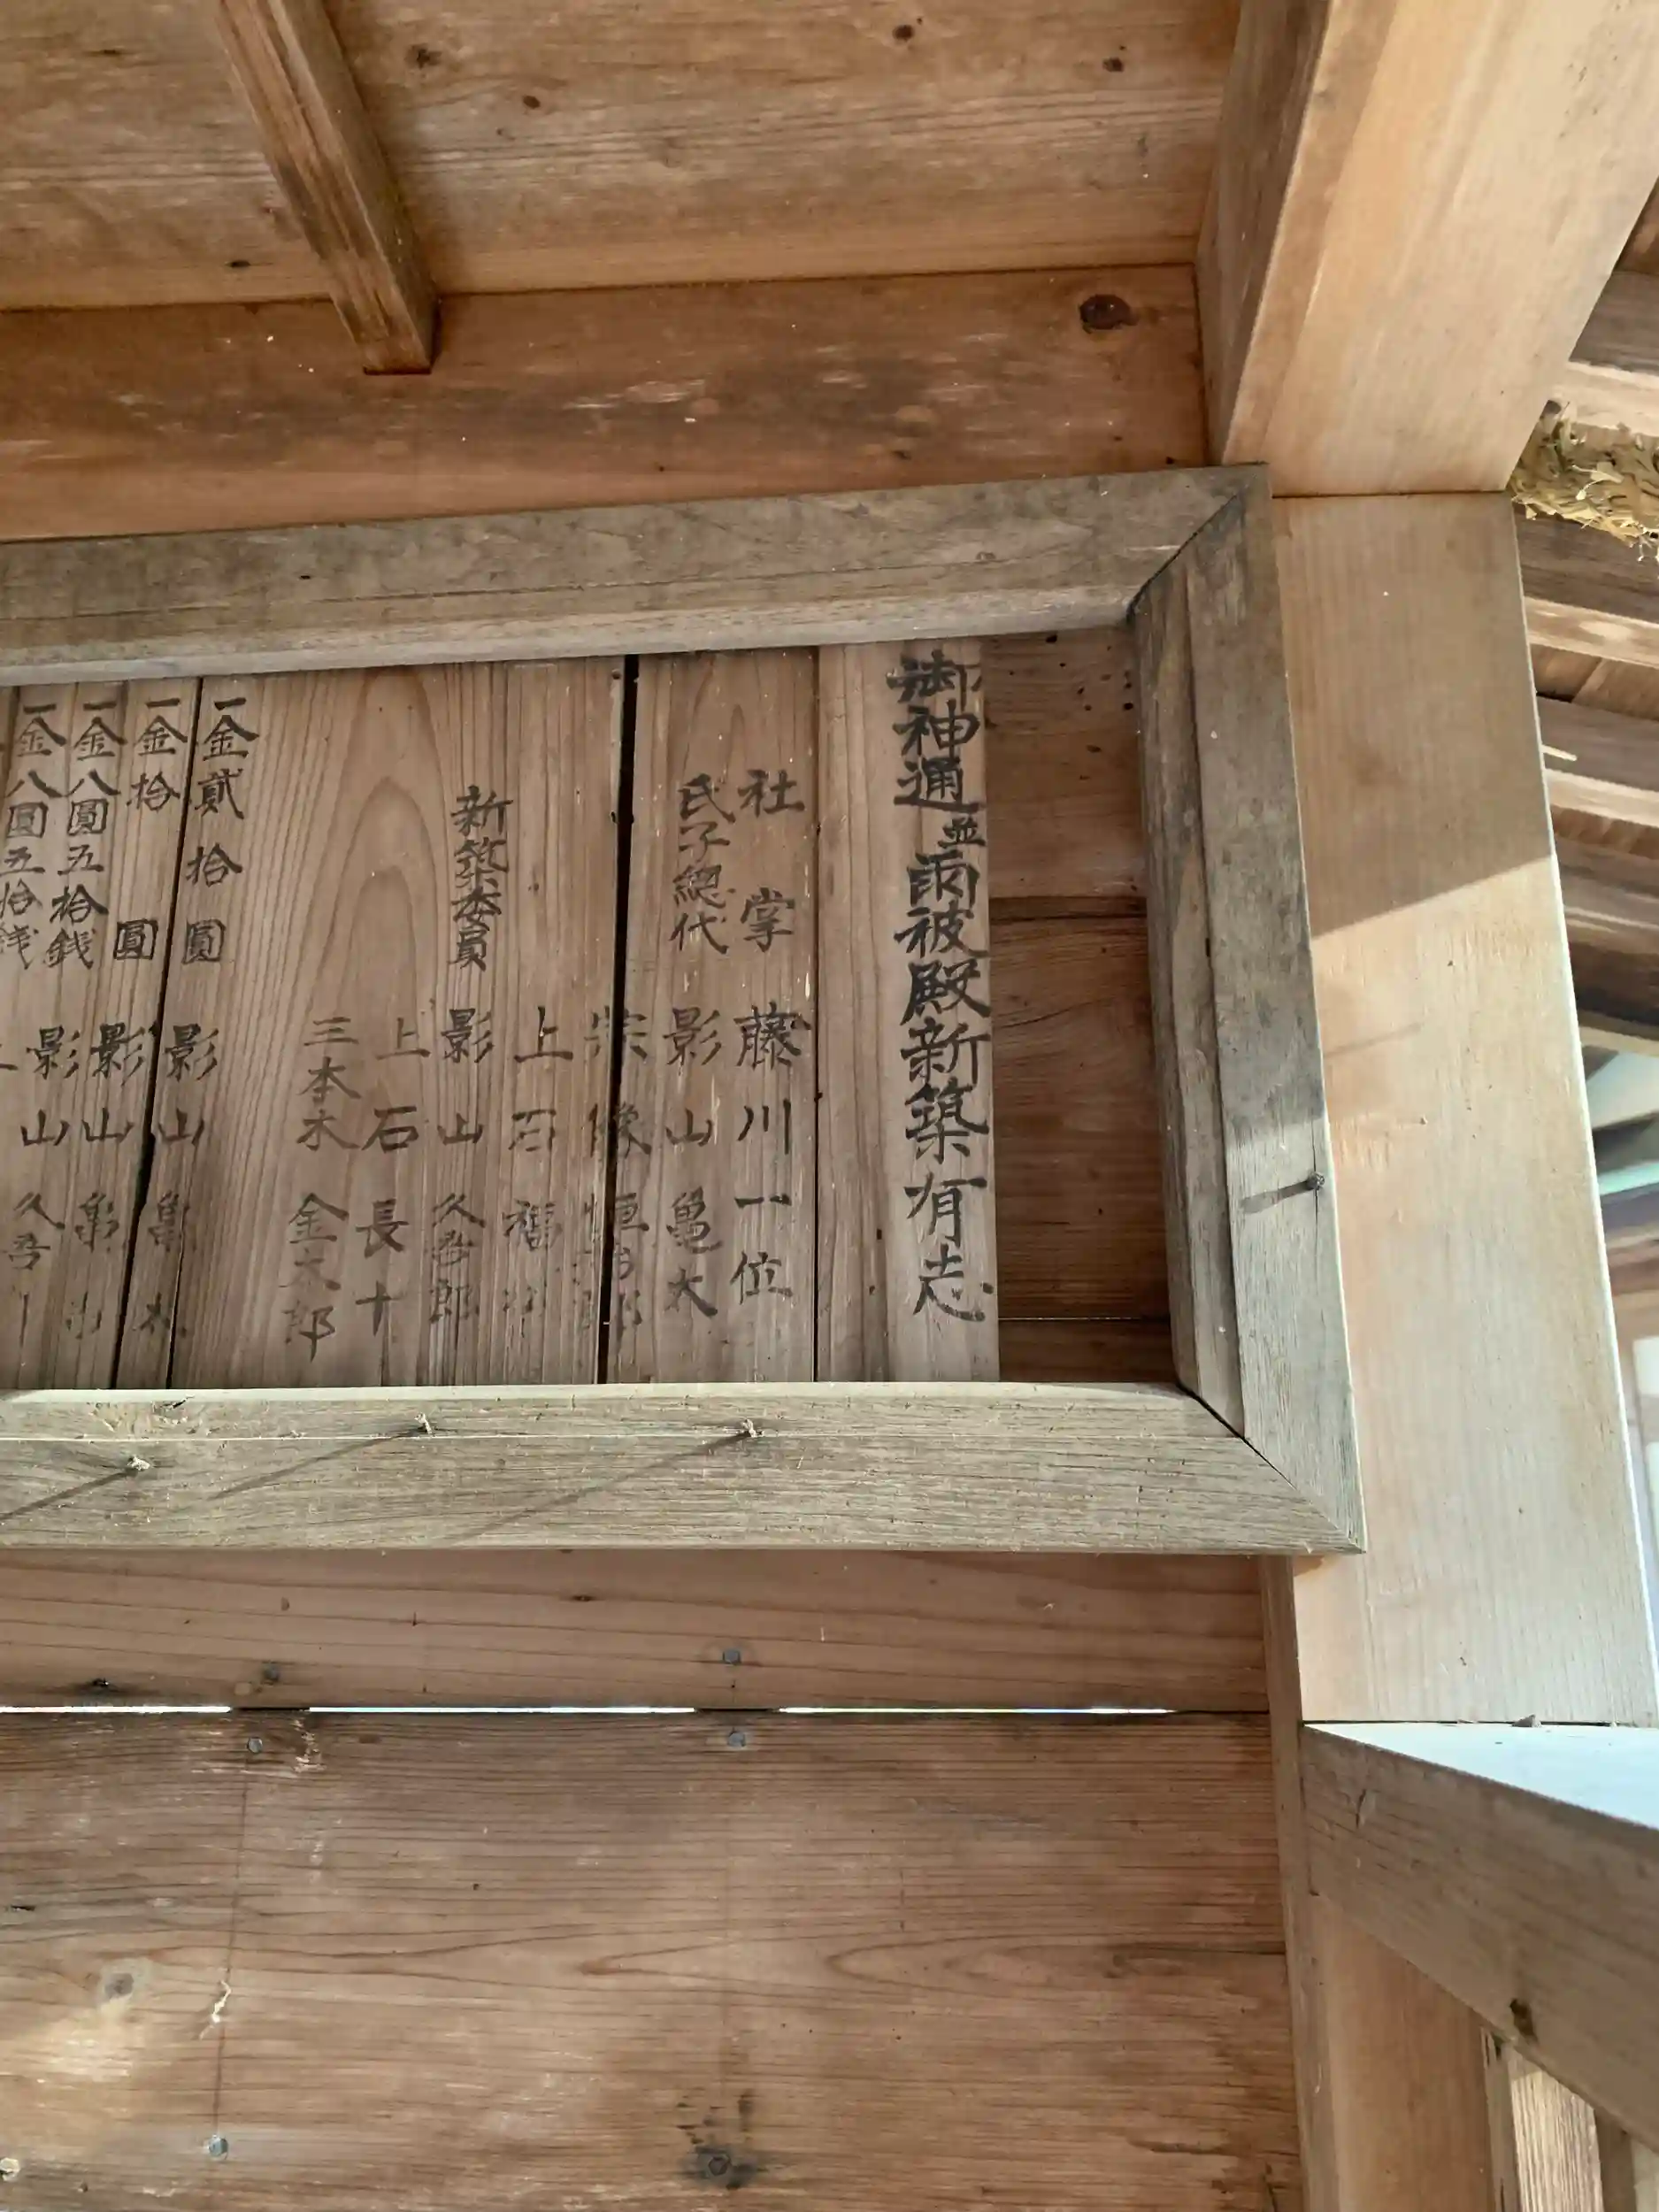 御神通並両祓殿新築有志
社掌 藤川一位
氏子總代 影山亀太
宗像恒治郎
上石福
新築委員 影山久吾郎
上石長十
三本木金太郎
一金貳拾圓 影山亀太
一金拾圓 影山
一金八圓五拾銭 影山久吾
一金八圓五拾銭